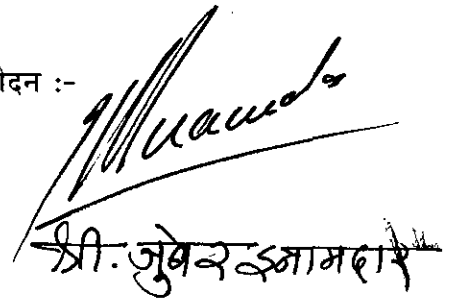 ोदन :-
श्री. जुबेर इनामदार